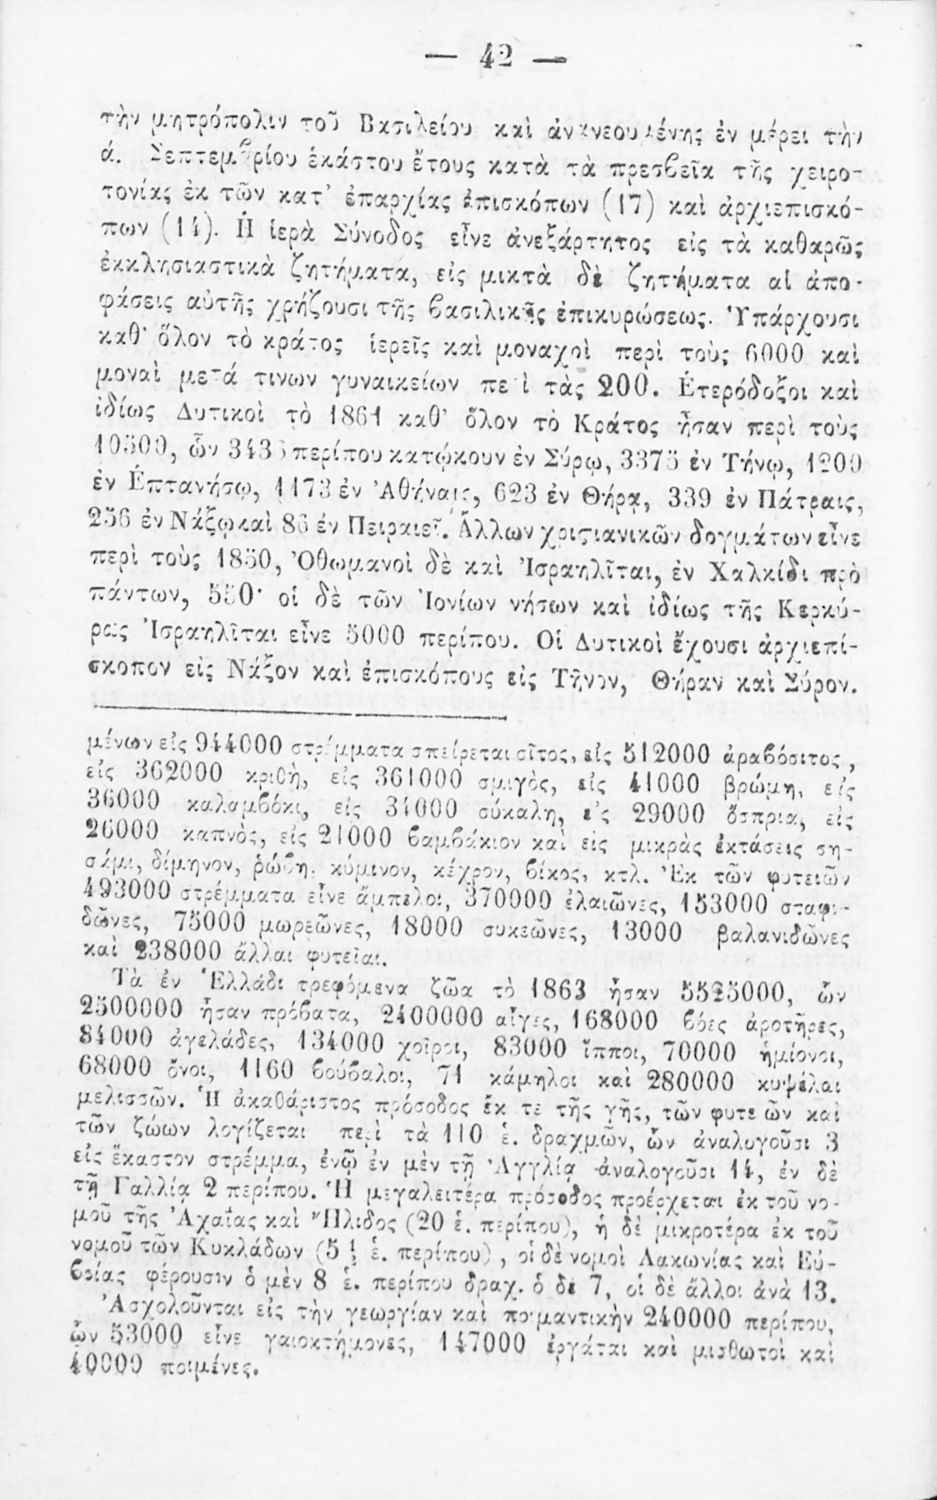 — 42 —
τὴν μητρόπολιν τοῦ Βασιλείου καὶ ἀνανεουμένης ἐν μέρει τὴν
ά. Σεπτεμβρίου ἑκάστου ἔτους κατὰ τὰ πρεσβεῖα τῆς χειρο-
τονίας ἐκ τῶν κατ' ἐπαρχίας ἐπισκόπων (17) καὶ ἀρχιεπισκό-
πων (14). Ἡ ἱερὰ Σύνοδος εἶνε ἀνεξάρτητος εἰς τὰ καθαρῶς
ἐκκλησιαστικὰ ζητήματα, εἰς μικτὰ δὲ ζητήματα αἱ ἀπο-
φάσεις αὐτῆς χρήζουσι τῆς βασιλικῆς ἐπικυρώσεως. Ὑπάρχουσι
καθ' ὅλον τὸ κράτος ἱερεῖς καὶ μοναχοὶ περὶ τοὺς 6000 καὶ
μοναὶ μετά τινων γυναικείων περὶ τὰς 200. Ἑτερόδοξοι καὶ
ἰδίως Δυτικοὶ τὸ 1861 καθ' ὅλον τὸ Κράτος ἦσαν περὶ τοὺς
10500, ὧν περίπου κατῴκουν ἐν Σύρῳ, 3375 ἐν Τήνῳ, 1200
ἐν Ἑπτανήσῳ, 1173 ἐν Ἀθήναις, 623 ἐν Θήρᾳ, 339 ἐν Πάτραις,
256 ἐν Νάξῳ καὶ 86 ἐν Πειραιεῖ. Ἄλλων χριστιανικῶν δογμάτων εἶνε
περὶ τοὺς 1850, Ὀθωμανοὶ δὲ καὶ Ἰσραηλῖται, ἐν Χαλκίδι πρὸ
πάντων, 550· οἱ δὲ τῶν Ἰονίων νήσων καὶ ἰδίως τῆς Κερκύ-
ρας Ἰσραηλῖται εἶνε 5000 περίπου. Οἱ Δυτικοὶ ἔχουσι ἀρχιεπί-
σκοπον εἰς Νάξον καὶ ἐπισκόπους εἰς Τῆνον, Θήραν καὶ Σύρον.
μένων εἰς 944000 στρέμματα σπείρεται σῖτος, εἰς 512000 ἀραβόσιτος,
εἰς 362000 κριθὴ, εἰς 361000 σμιγὸς, εἰς 41000 βρώμη, εἰς
36000 καλαμβόκι, εἰς 31000 σύκαλη, εἰς 29000 ὄσπρια, εἰς
26000 καπνὸς, εἰς 21000 βαμβάκιον καὶ εἰς μικρὰς ἐκτάσεις ση-
σάμι, δίμηνον, ῥώβη, κύμινον, κέχρον, βίκος, κτλ. Ἐκ τῶν φυτειῶν
493000 στρέμματα εἶνε ἄμπελοι, 370000 ἐλαιῶνες, 153000 σταφι-
δῶνες, 75000 μωρεῶνες, 18000 συκεῶνες, 13000 βαλανιδῶνες
καὶ 238000 ἄλλαι φυτεῖαι.
Τὰ ἐν Ἑλλάδι τρεφόμενα ζῶα τὸ 1863 ἦσαν 5525000, ὧν
2500000 ἦσαν πρόβατα, 2400000 αἶγες, 168000 βόες ἀροτῆρες,
84000 ἀγελάδες, 134000 χοῖροι, 83000 ἵπποι, 70000 ἡμίονοι,
68000 ὄνοι, 1160 βούβαλοι, 71 κάμηλοι καὶ 280000 κυψέλαι
μελισσῶν. Ἡ ἀκαθάριστος πρόσοδος ἔκ τε τῆς γῆς, τῶν φυτειῶν καὶ
τῶν ζώων λογίζεται περὶ τὰ 110 ἑ. δραχμῶν, ὧν ἀναλογοῦσι 3
εἰς ἕκαστον στρέμμα, ἐνῷ ἐν μὲν τῇ Ἀγγλίᾳ ἀναλογοῦσι 14, ἐν δὲ
τῇ Γαλλίᾳ 2 περίπου. Ἡ μεγαλειτέρα πρόσοδος προέρχεται ἐκ τοῦ νο-
μοῦ τῆς Ἀχαΐας καὶ Ἤλιδος (20 ἑ. περίπου), ἡ δὲ μικροτέρα ἐκ τοῦ
νομοῦ τῶν Κυκλάδων (5 ἑ. περίπου), οἱ δὲ νομοὶ Λακωνίας καὶ Εὐ-
βοίας φέρουσιν ὁ μὲν 8 ἑ. περίπου δραχ. ὁ δὲ 7, οἱ δὲ ἄλλοι ἀνὰ 13.
Ἀσχολοῦνται εἰς τὴν γεωργίαν καὶ ποιμαντικὴν 240000 περίπου,
ὧν 53000 εἶνε γαιοκτήμονες, 147000 ἐργάται καὶ μισθωτοὶ καὶ
40000 ποιμένες.